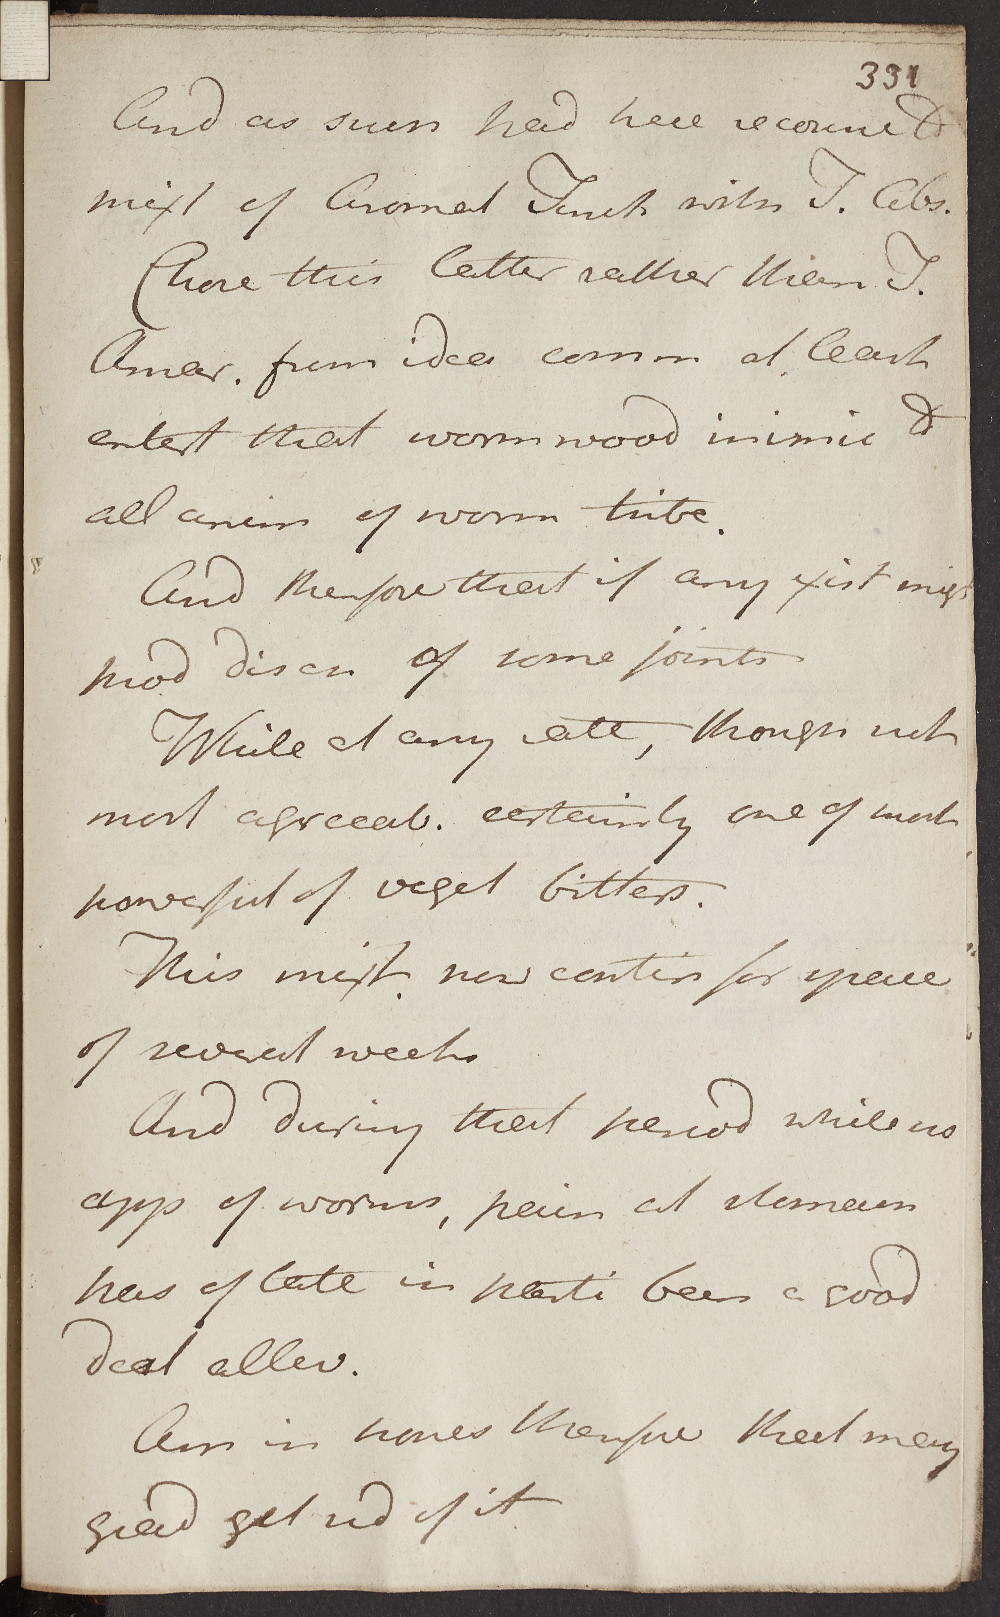 331
And as such had here recourse to
mixt of Aromat Tinct with T. Abs.
Chose this latter rather than T.
Amar. from idea comm at least
entert that wormwood inimic to
all anim of worm tribe.
And therefore that if any exist migt
prod disch of some joints
While at any rate, though not
most agreeab. certainly one of most
powerful of veget bitters.
This mixt. now contin for space
of several weeks
And during that period while no
app of worms, pain at stomach
has of late in parti been a good
deal allev.
Am in hopes therefore that may
grad get rid of it